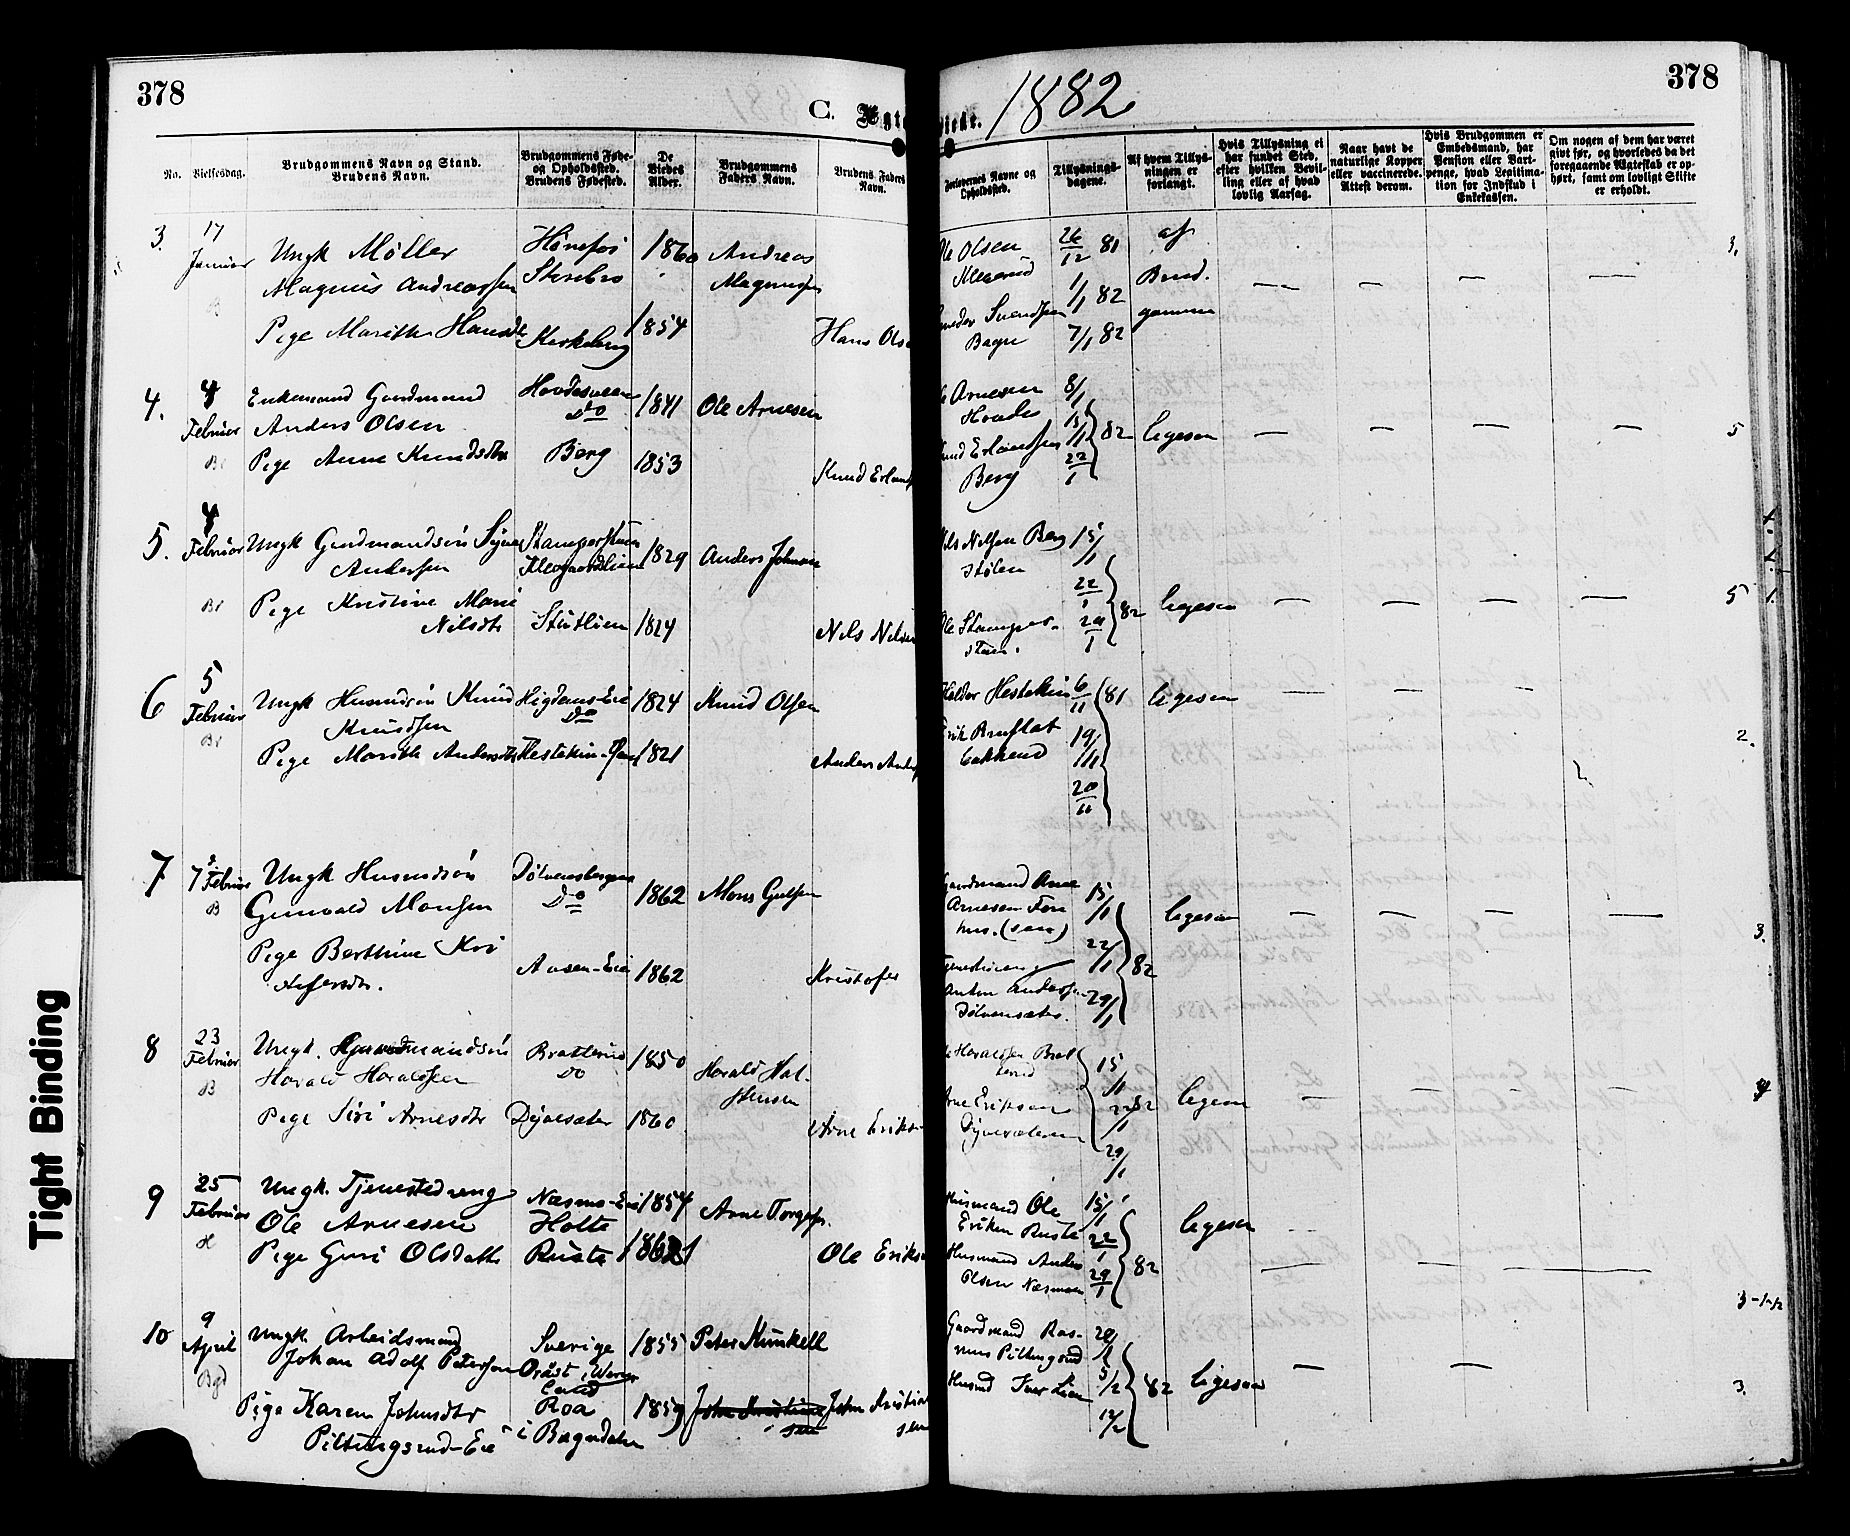 378
C. Ægteviede.
1882
378
No.
Vielsesdag.
Brudgommens Navn og Stand.
Brudens Navn.
Brudgommens Føde-
og Opholdssted.
Brudens Fødested.
De
Viedes
Alder.
Brudgommens
Faders Navn.
Brudens Faders
Navn.
Forlovernes Navne og
Opholdssted.
Tillysnings-
dagene.
Af hvem Tillys-
ningen er
forlangt.
Hvis Tillysning ei
har fundet Sted,
efter hvilken Bevil-
ling eller af hvad
lovlig Aarsag.
Naar havt de
naturlige Kopper
eller vaccinerede.
Attest derom.
Hvis Brudgommen er
Embedsmand, har
Pension eller Vart-
penge, hvad Legitima-
tion for Indskud i
Enkekassen.
Om nogen af dem har været
givt før, og hvorledes da det
foregaaende Ægteskab er op-
hørt, samt om lovligt Skifte
er erholdt.
3.
17
Januar
B
Ungk Møller
Magnus Andreassen
Pige Marith Hansdtr
Hønefos
Storebro
Kirkeberg
1860
1854
Andreas
Magnussen
Hans Olse
Ole Olsen
Svendsen
Bagn
26/12 81
1/1 82
7/1 82
af
Brud.
gommen
3.
4.
4
Februar
Br
Enkemand Gardmand
Anders Olsen
Pige Anne Knudsdtr
Do
Berg
1841
1853
Ole Arnesen
Knud Erland
Arnesen
Knud Erlandsen
Berg
8/1
15/1
22/1
82
ligesaa
5
5.
4
Februar
Br
Ungk Gardmandsøn
Andersen
Pige Kristine Marie
Nilsdtr
Stutlien
1829
1824
Anders Johnsen
Nils Nilsen
Nils Nilsen Berg
Stølen
Ole Stamper-
stuen.
15/1
22/1
29/1
82
ligesaa
5
6
5
Februar
Br
Ungk Husmdsøn Knud
Knudsen
Pige Marith Andersdtr
Do
1824
1821
Knud Olsen
Anders Anders
Haldor Hestekin
Erik Bruflat
6/11
19/11
20/11
81
ligesaa
2.
7
7 Februar
B
Ungk Husmdsøn
Gunvald Monsen
Pige Berthine Kri
stofersdtr.
Do
1862
1862
Mons Gulsen
Kristofer
Gaardmand Arne
Arnesen
(sen)
Anton Andersen
15/1
22/1
29/1
82
ligesaa
3.
8
23
Februar
B
Ungk. Gardmandsøn
Harald Haraldsen
Pige Siri Arnesdtr
Bratterud
Do
Dyvesæter
1850
1860
Harald Hal-
stensen
Arne Eriks
Haraldsen Brat
terud
Arne Eriksen
15/1
22/1
29/1
82
ligesaa
4
9
25
Februar
H
Ungk. Tjenestedreng
Ole Arnesen
Pige Guri Olsdatter
Næsmo-Eie
Holte
Ruste
1854
1861
Arne Torgeirs.
Ole Eriks
Husmand Ole
Eriksen Ruste
Husmand Anders
Olsen Næsmoen
15/1
22/1
29/1
82
ligesaa
3-1-½
10
9
April
Bgd
Ungk. Arbeidsmand
Johan Adolf Peterson
Pige Karen Johnsdtr
Piltingsrud-Eie
Sverige
land
Roa
i Bagndalen
1855
1859
Peter Kunkell
John Kristian
sen
Gaardmand Ras-
mus Piltingsrud
Husmd Iver Lien
29/1
5/2
12/2
82
ligesaa
3.
Tight Binding